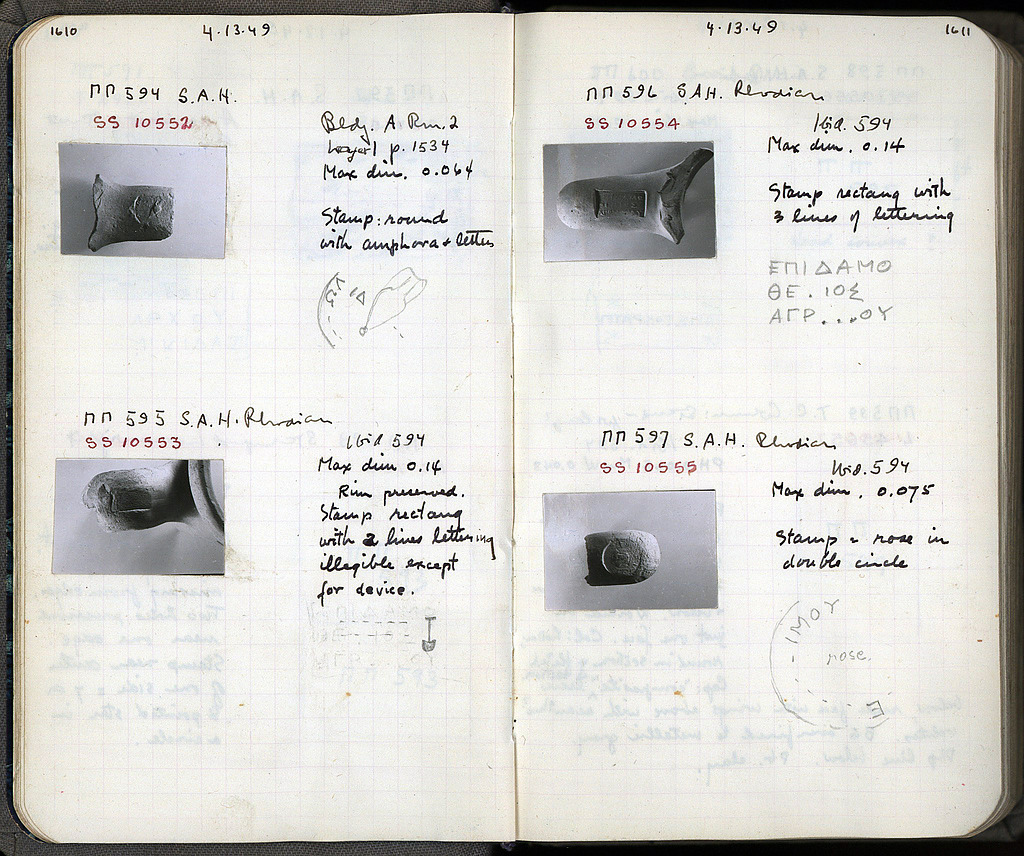 1610
4·13·49
ΠΠ 594 S.A.H.
SS 10552
Bldg. A Rm. 2
Layer 1 p. 1534
Max dim. 0.064
Stamp: round
with amphora + letters
ΠΠ 595 S.A.H. Rhodian
SS 10553
Ibid 594
Max dim 0.14
Rim preserved.
Stamp rectang
with 2 lines lettering
illegible except
for device.
4·13·49
1611
ΠΠ 596 S.A.H. Rhodian
SS 10554
Ibid. 594
Max dim. 0.14
Stamp rectang with
3 lines of lettering
ΕΠΙΔΑΜΟ
ΘΕ.ΙΟΣ
ΑΓΡ....ΟΥ
ΠΠ 597 S.A.H. Rhodian
SS 10555
Ibid. 594
Max dim. 0.075
Stamp = rose in
double circle
ΙΜΟΥ
rose.
Ε